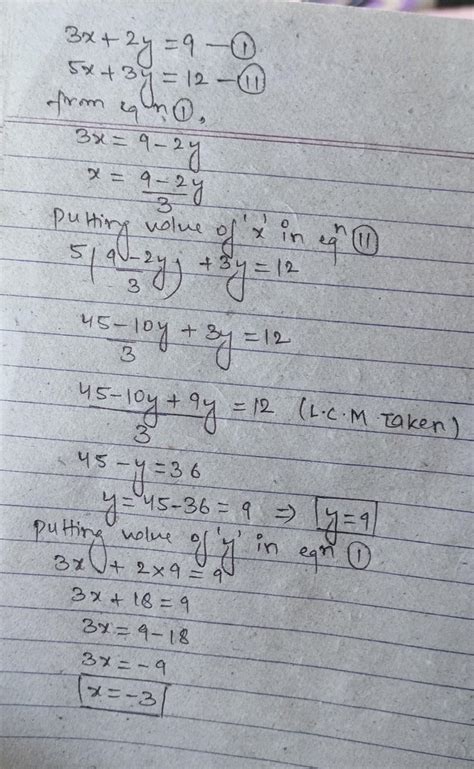 3x + 2y = 9 — (I)
5x + 3y = 12 — (II)
from eqn (I),
3x = 9 - 2y
x = (9 - 2y)/3
putting value of 'x' in eqⁿ (II)
5((9 - 2y)/3) + 3y = 12
(45 - 10y)/3 + 3y = 12
(45 - 10y + 9y)/3 = 12 (L.C.M Taken)
45 - y = 36
y = 45 - 36 = 9 ⇒ y = 9
putting value of 'y' in eqn (I)
3x + 2 × 9 = 9
3x + 18 = 9
3x = 9 - 18
3x = -9
x = -3